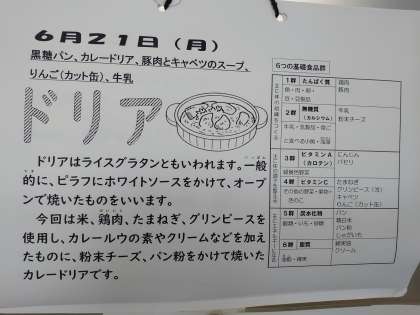 6月21日（月）
黒糖パン、カレードリア、豚肉とキャベツのスープ、
りんご（カット缶）、牛乳
ドリア
ドリアはライスグラタンともいわれます。一般
的に、ピラフにホワイトソースをかけて、オーブ
ンで焼いたものをいいます。
今回は米、鶏肉、たまねぎ、グリンピースを
使用し、カレールウの素やクリームなどを加え
たものに、粉末チーズ、パン粉をかけて焼いた
カレードリアです。
6つの基礎食品群
1群 たんぱく質
魚・肉・卵・
豆・豆製品
鶏肉
豚肉
2群 無機質
（カルシウム）
牛乳・乳製品・骨ご
と食べる小魚・海藻
牛乳
粉末チーズ
3群 ビタミンA
（カロテン）
緑黄色野菜
にんじん
パセリ
4群 ビタミンC
その他の野菜・果物・
きのこ
たまねぎ
グリンピース（冷）
キャベツ
りんご（カット缶）
5群 炭水化物
穀類・いも・砂糖
パン
精白米
パン粉
じゃがいも
6群 脂質
油脂・種実
綿実油
クリーム